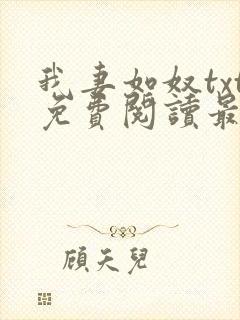 我妻如奴txt
免費閱讀最
顧天兒